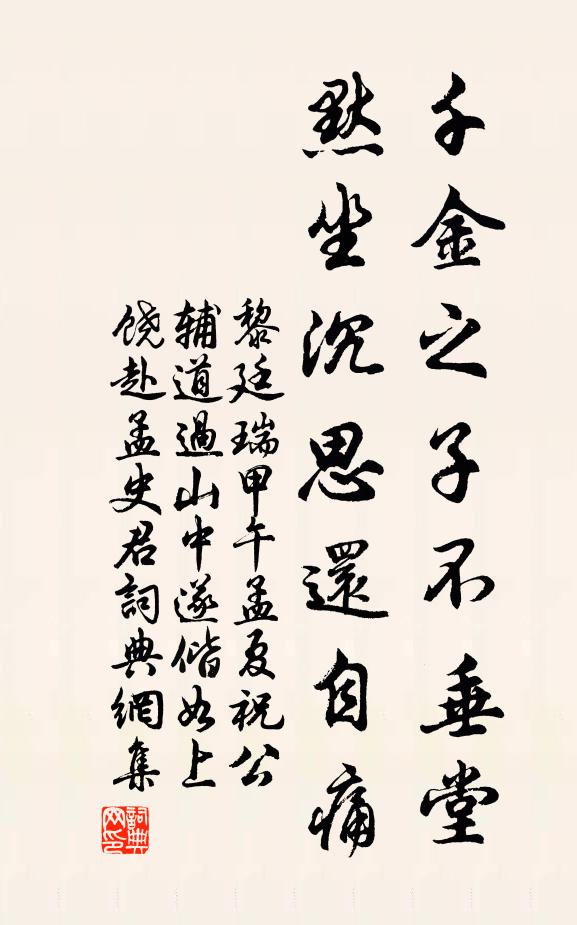 千金之子不垂堂
默坐沉思還自痛
黎廷瑞甲午孟夏祝公
辅道過山中遂偕如上
饶赴孟史君詞典網集
詞典网印